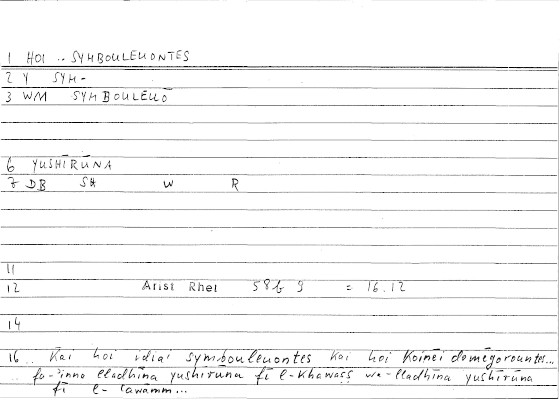 1 HOI .. SYMBOULEUONTES
2 Y SYM-
3 WM SYMBOULEUŌ
6 YUSHĪRŪNA
7 DB SH W R
11
12 Arist Rhet 58b 9 = 16.12
14
16 .. Kai hoi idiai symbouleuontes kai hoi koinēi dēmēgorountes...
.. fa-inna lladhīna yushīrūna fī l-khawāṣṣ wa-lladhīna yushīrūna
fī l-ʿawāmm...